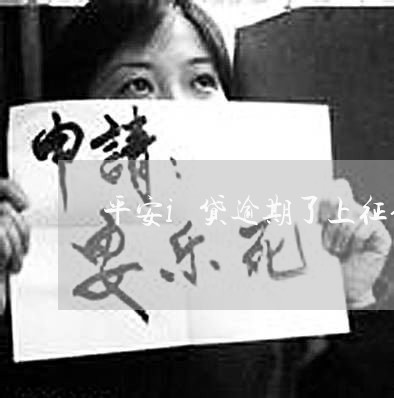 申請：
平安i 貸逾期了上征
要乐死